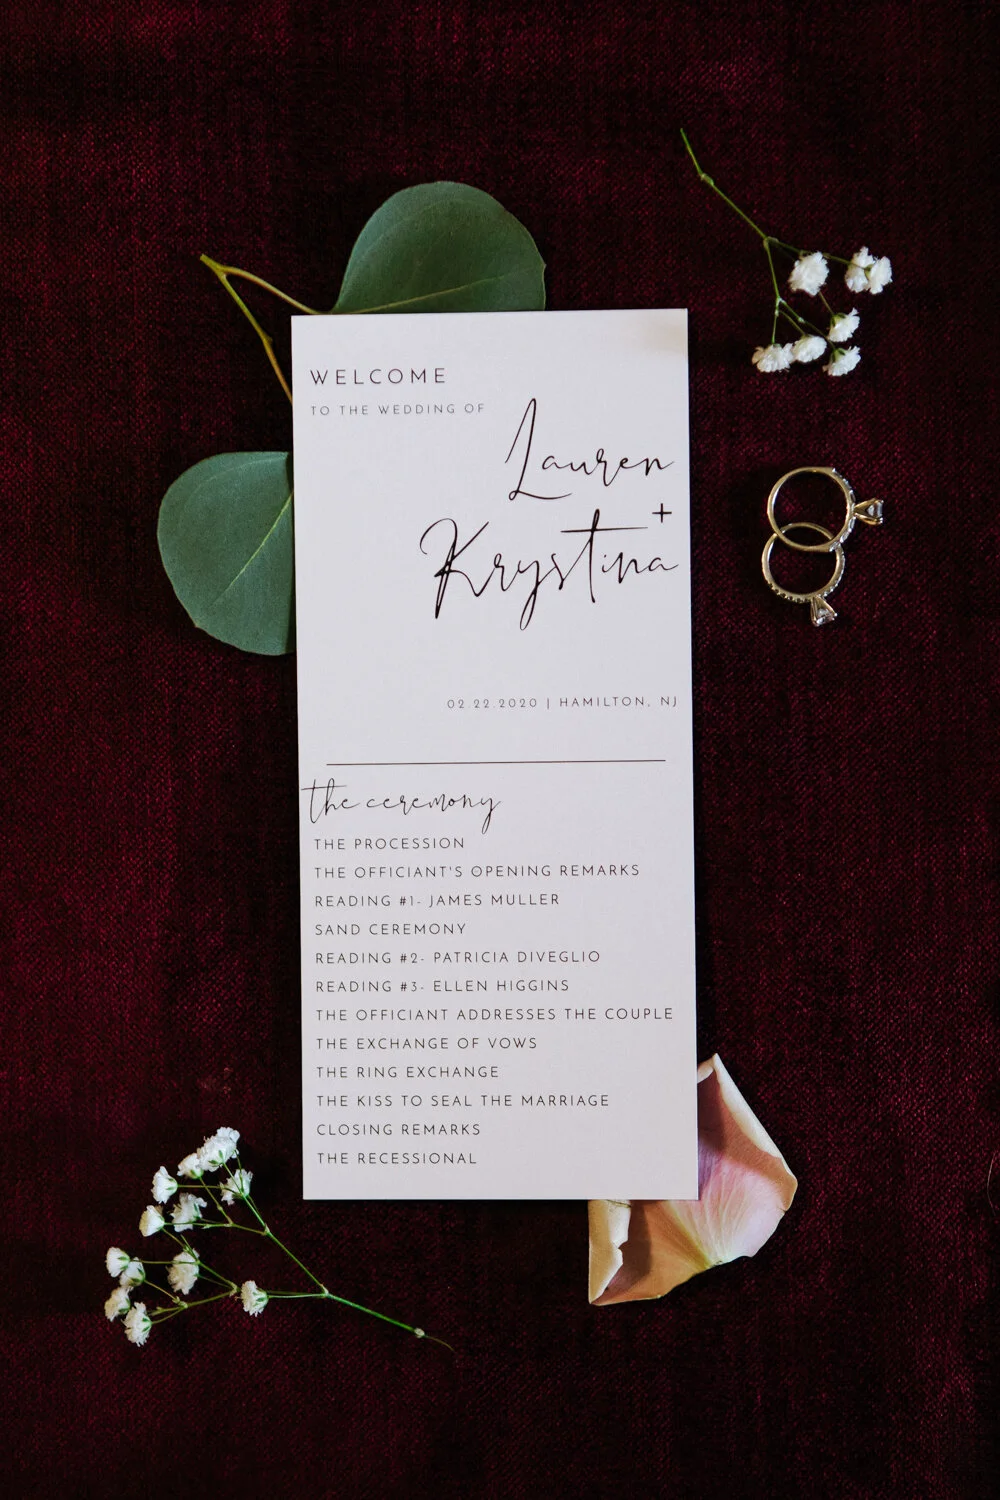 WELCOME
TO THE WEDDING OF
Lauren
+
Krystina
02.22.2020 | HAMILTON, NJ
the ceremony
THE PROCESSION
THE OFFICIANT'S OPENING REMARKS
READING #1- JAMES MULLER
SAND CEREMONY
READING #2- PATRICIA DIVEGLIO
READING #3- ELLEN HIGGINS
THE OFFICIANT ADDRESSES THE COUPLE
THE EXCHANGE OF VOWS
THE RING EXCHANGE
THE KISS TO SEAL THE MARRIAGE
CLOSING REMARKS
THE RECESSIONAL